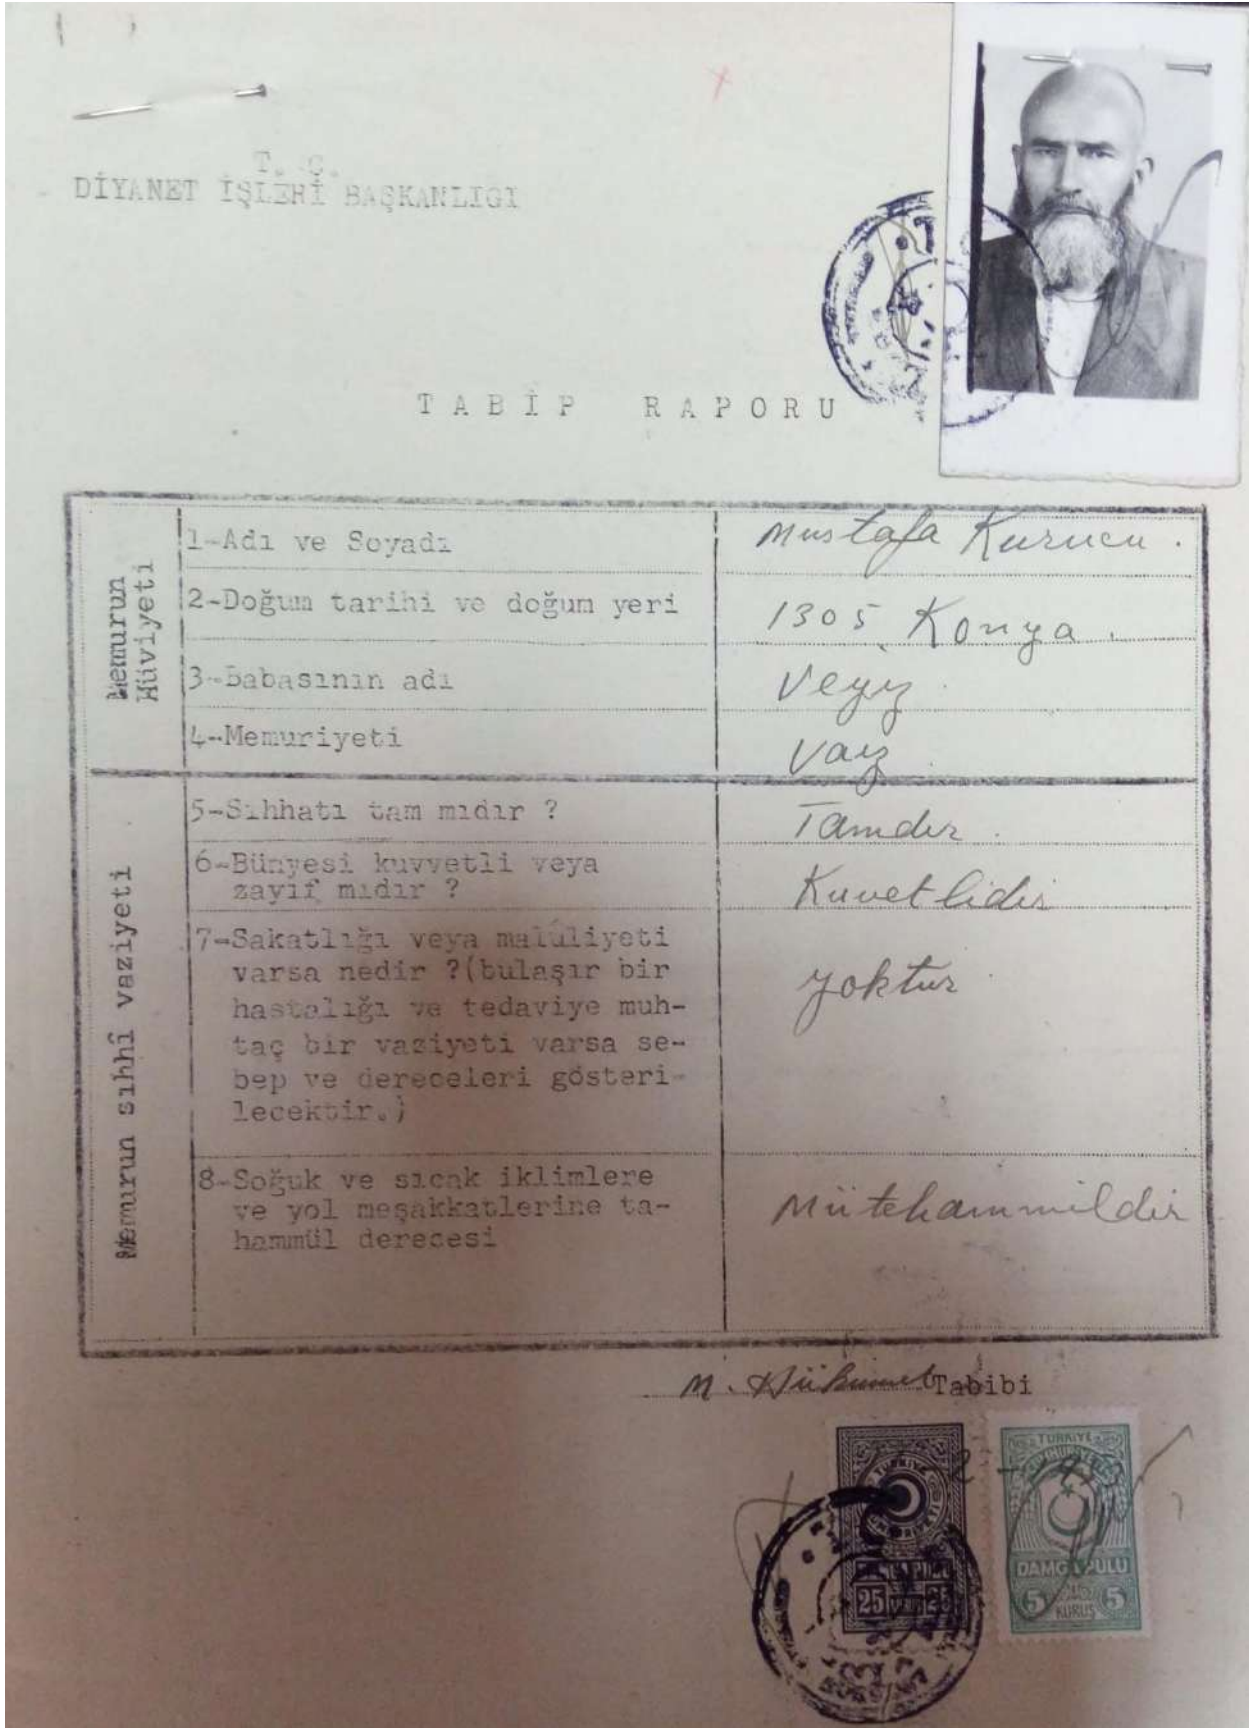 T. C.
DİYANET İŞLERİ BAŞKANLIGI
TABİP RAPORU
Memurun
Hüviyeti
1-Adı ve Soyadı
Mustafa Kurucu.
2-Doğum tarihi ve doğum yeri
1305 Konya.
3-Babasının adı
Veyiz
4-Memuriyeti
Vaiz
Memurun sıhhî vaziyeti
5-Sıhhatı tam mıdır ?
Tamdır.
6-Bünyesi kuvvetli veya
zayıf mıdır ?
Kuvetlidir
7-Sakatlığı veya malûliyeti
varsa nedir ?(bulaşır bir
hastalığı ve tedaviye muh-
taç bir vaziyeti varsa se-
bep ve dereceleri gösteri-
lecektir.)
yoktur
8-Soğuk ve sıcak iklimlere
ve yol meşakkatlerine ta-
hammül derecesi
Mütehammildir
M. Hükümet Tabibi
TÜRKİYE
CUMHURİYETİ
25 25
TÜRKİYE
CUMHURİYETİ
DAMGA PULU
5 KURUŞ 5